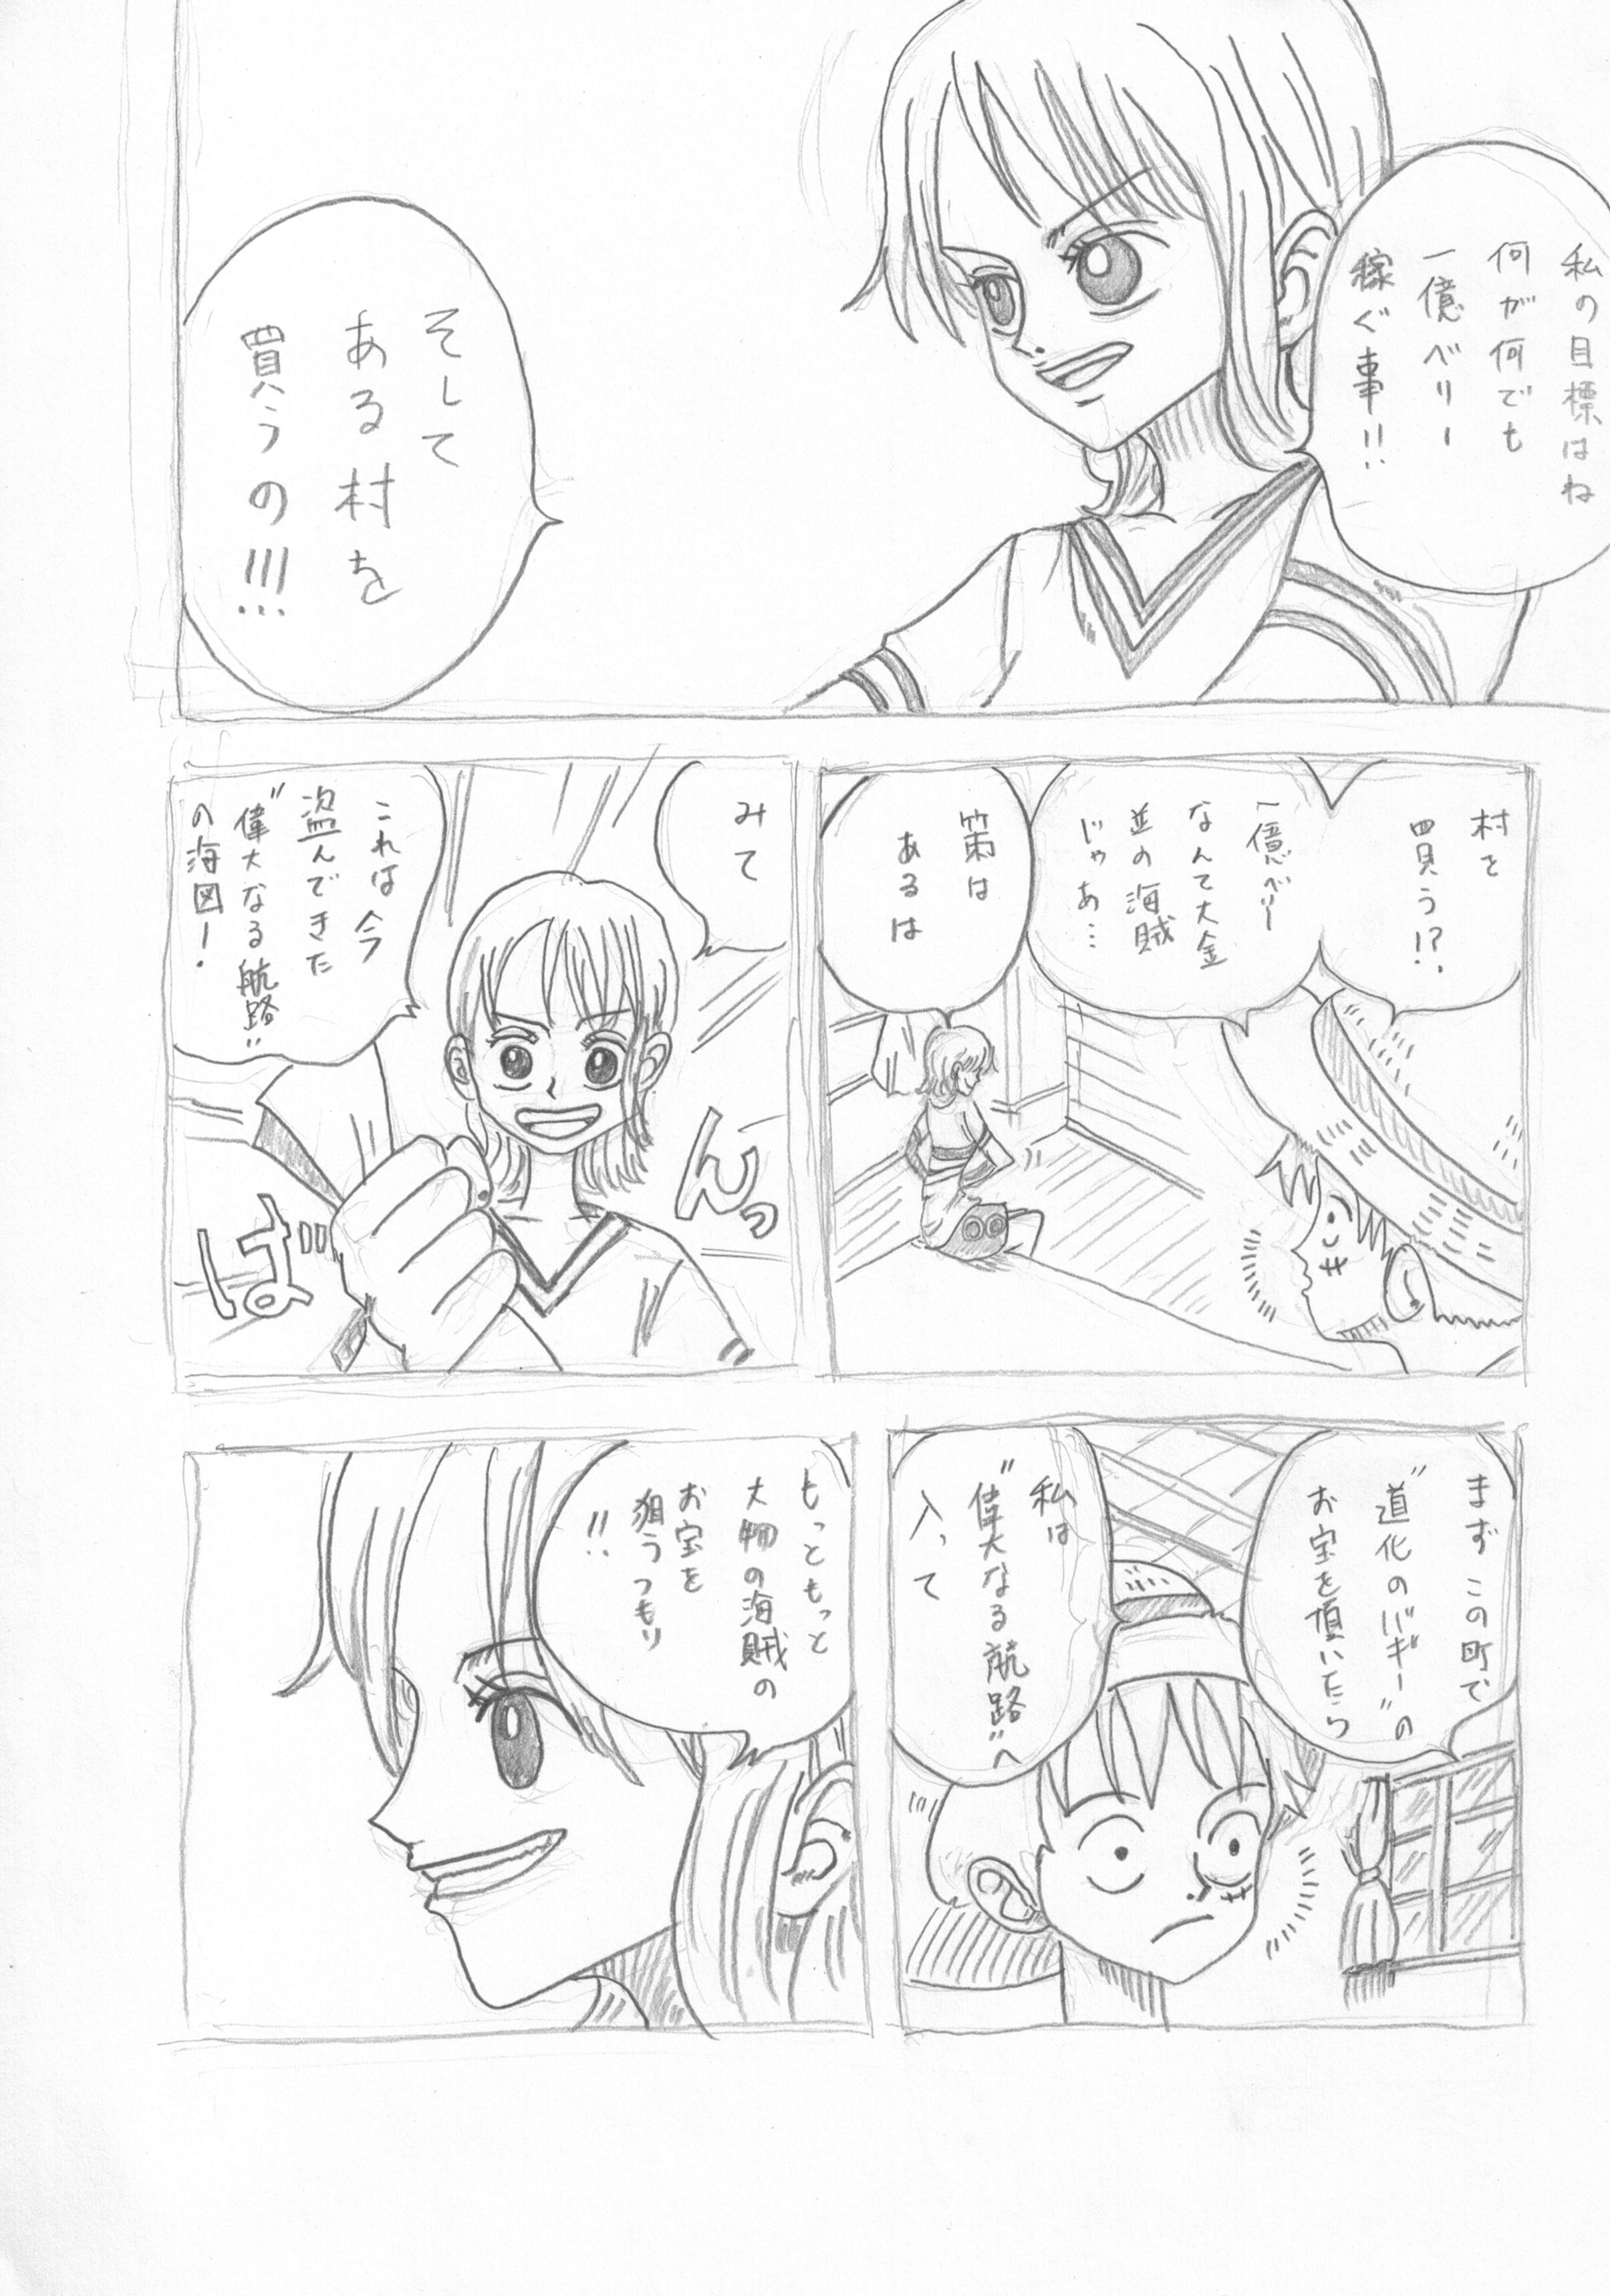 私の目標はね
何が何でも
一億ベリー
稼ぐ事!!
そして
ある村を
買うの!!!
村を
買う!?
一億ベリー
なんて大金
並の海賊
じゃあ…
策は
あるは
みて
これは今
盗んできた
"偉大なる航路"
の海図!
ばんっ
まずこの町で
"道化のバギー"の
お宝を頂いたら
私は
"偉大なる航路"へ
入って
もっともっと
大物の海賊の
お宝を
狙うつもり
!!